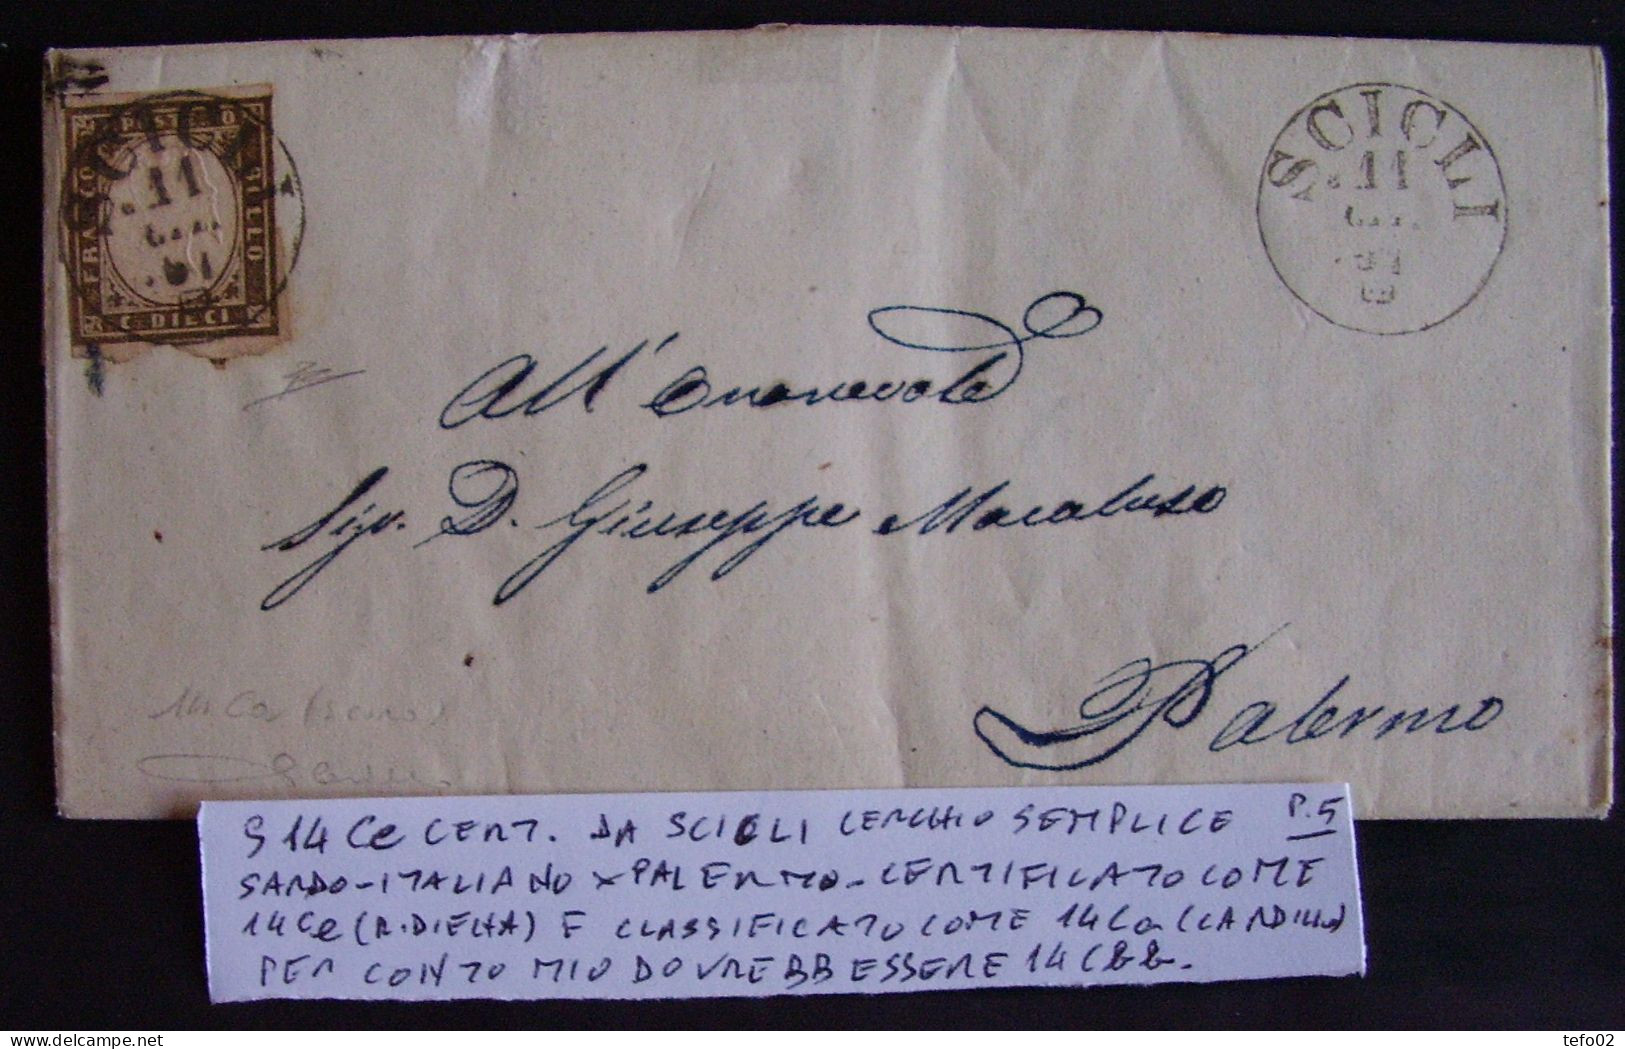 POST
FRANCO
BOLLO
C. DIECI
.11
SCICLI
.11
61
All' Onorevole
Sig. D. Giuseppe Macaluso
Palermo
14 Ca
S 14 Ce CERT. DA SCICLI CERCHIO SEMPLICE P.5
SARDO-ITALIANO X PALERMO - CERTIFICATO COME
14 Ce (R. DIENA) E CLASSIFICATO COME 14 Ca (CARDILLO)
PER CONTO MIO DOVREBB ESSERE 14 C
tefo02